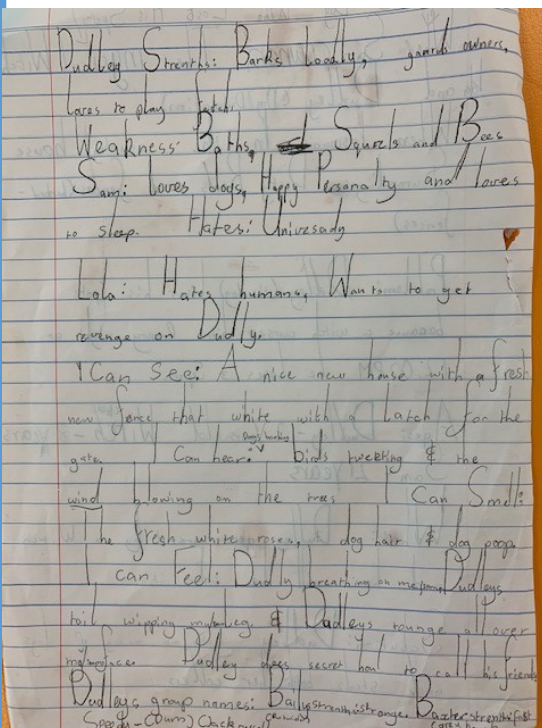 Dudley Strenths: Barks Loudly, guards owners,
loves to play fetch.
Weakness: Baths, Squrels and Bees
Sam: loves dogs, Happy Personalty and loves
to sleep. Hates: Univesady
Lola: Hates humans, Wants to get
revenge on Dudly.
I Can See: A nice new house with a fresh
new fence that white with a Latch for the
gate. I Can hear: Dogs barking birds tweeting & the
wind blowing on the trees I Can Smell:
The fresh white roses, dog hair & dog poop
I can Feel: Dudly breathing on me, Dudleys
tail wipping my leg & Dudleys tounge all over
my face. Dudley does secret howl to call his friends
Dudleys group names: Baily strenth: strong, Baxter strenth: fast
Speedy - (Dum) (Jack